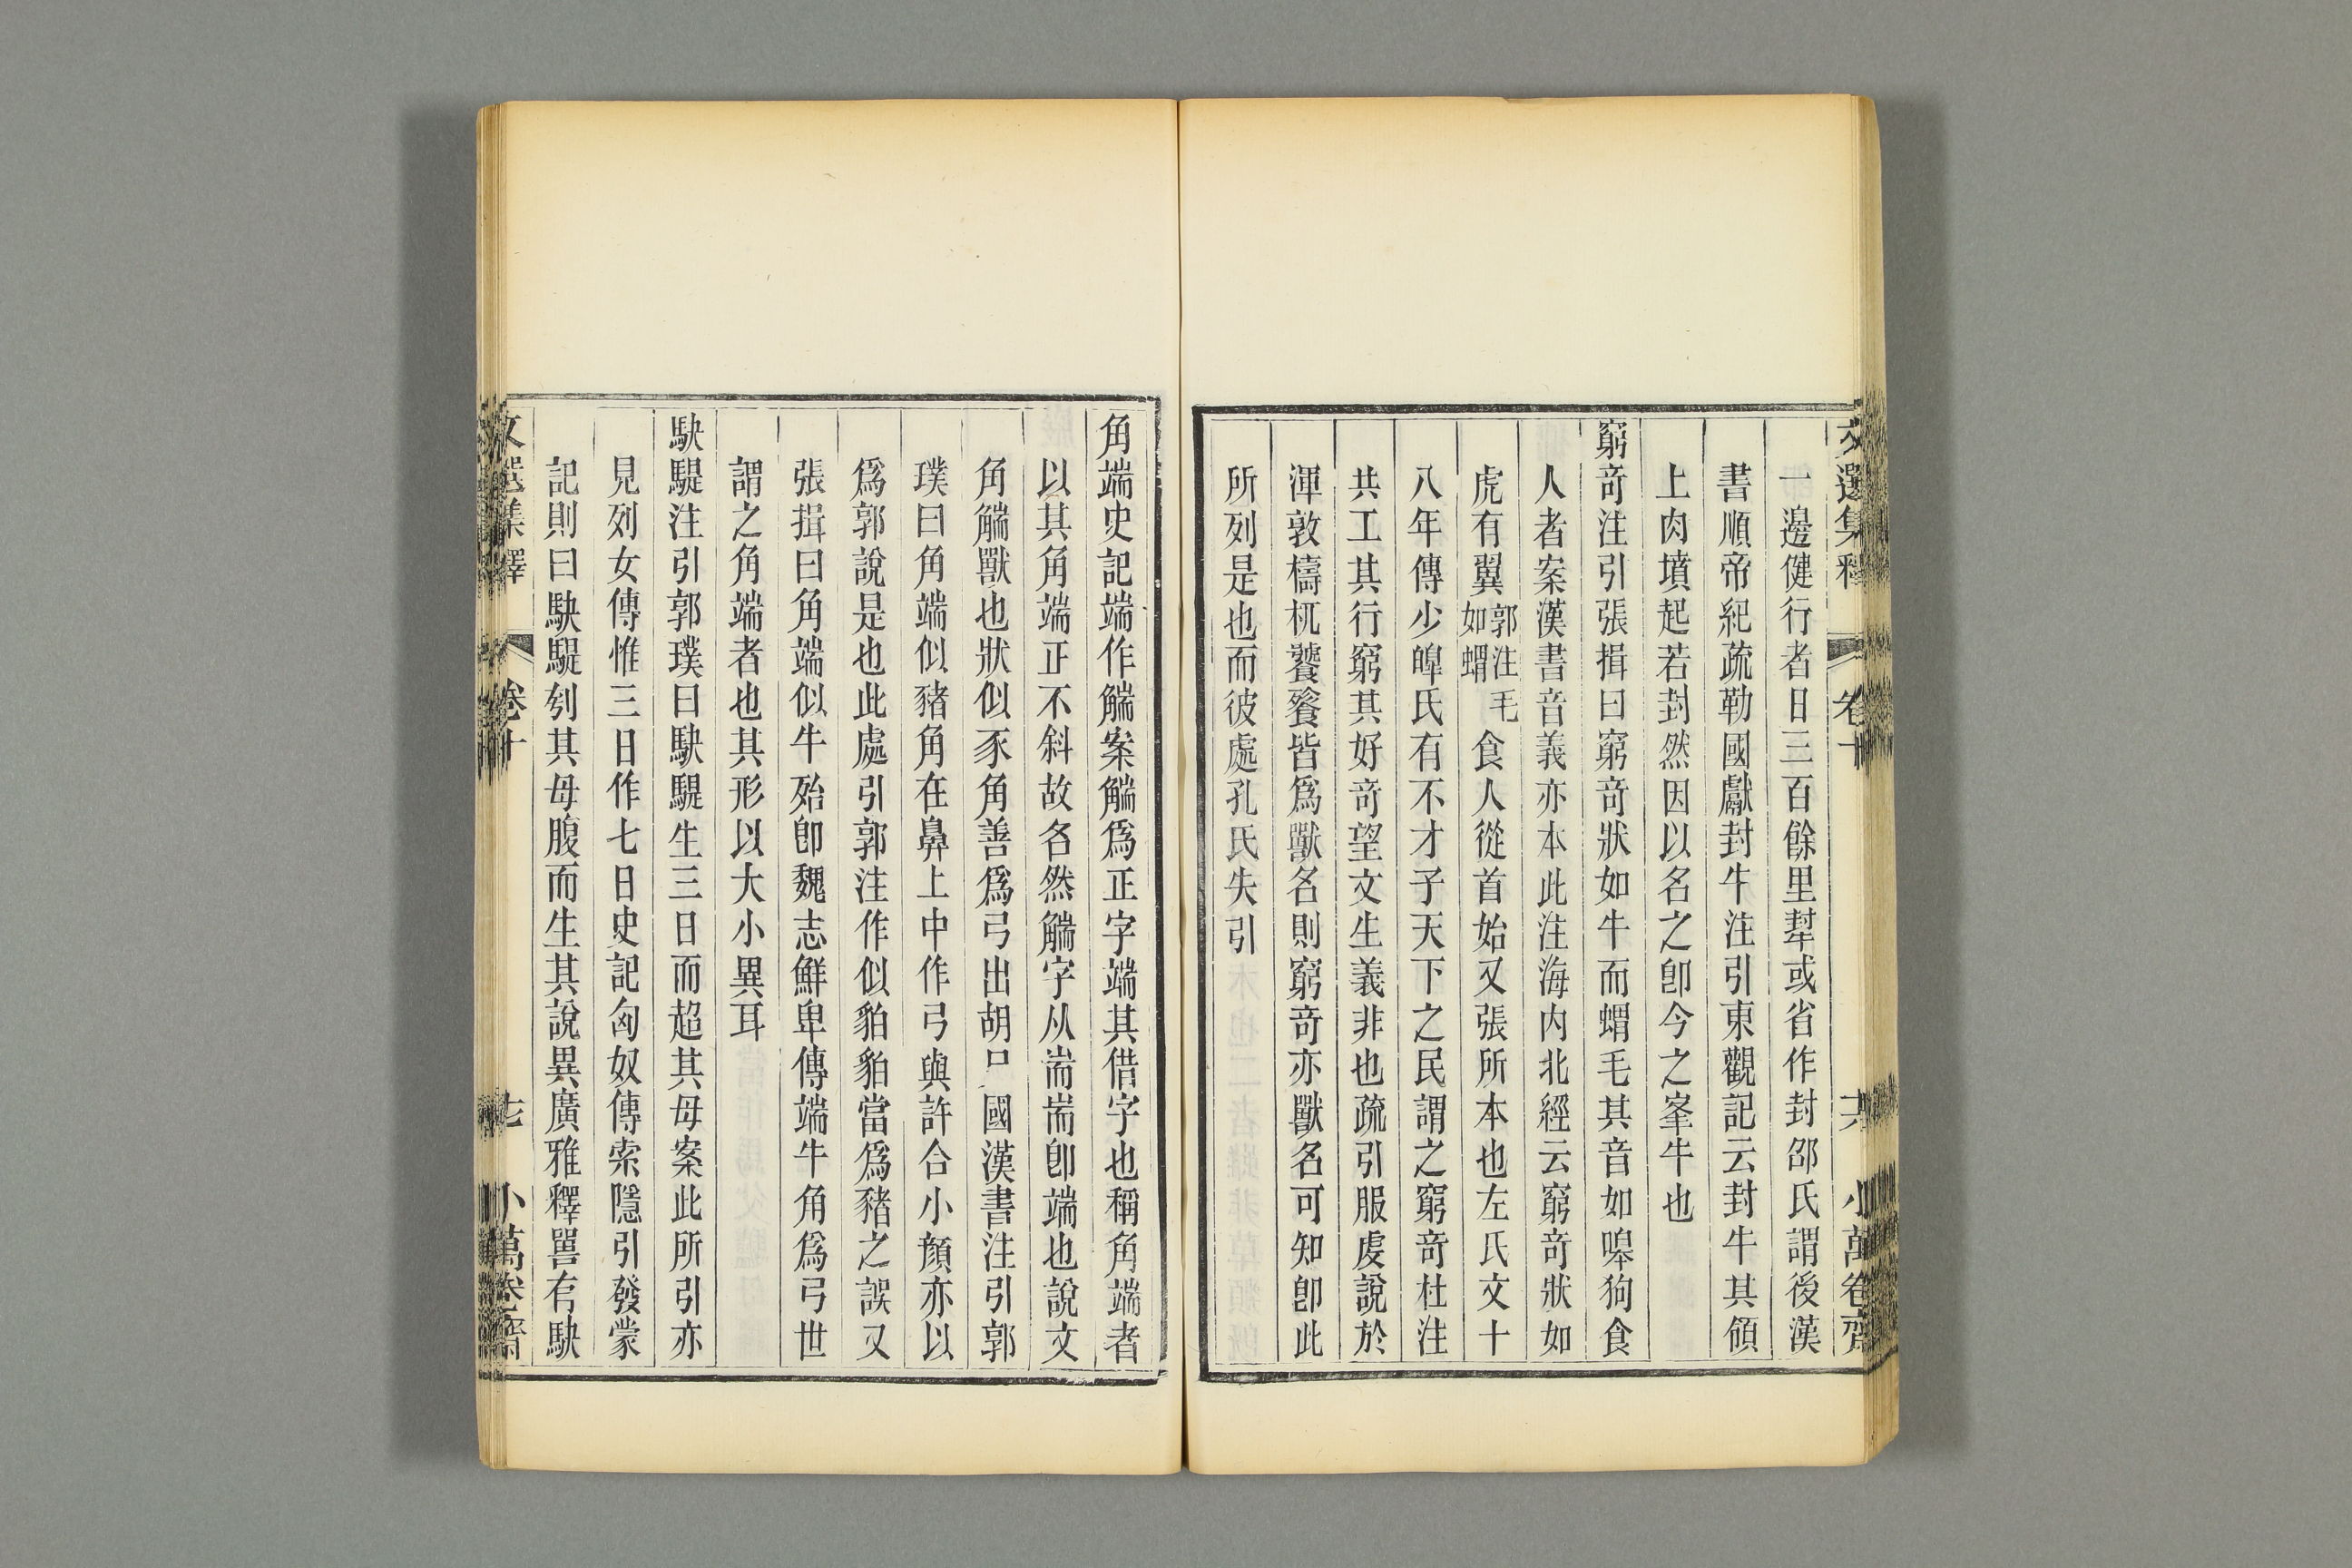 文選集釋 卷十 十六 小萬卷齋
一邊健行者日三百餘里犎或省作封邵氏謂後漢
書順帝紀疏勒國獻封牛注引東觀記云封牛其領
上肉墳起若封然因以名之卽今之峯牛也
窮奇注引張揖曰窮奇狀如牛而蝟毛其音如嗥狗食
人者案漢書音義亦本此注海內北經云窮奇狀如
虎有翼郭注如蝟毛食人從首始又張所本也左氏文十
八年傳少皥氏有不才子天下之民謂之窮奇杜注
共工其行窮其好奇望文生義非也疏引服虔說於
渾敦檮杌饕餮皆爲獸名則窮奇亦獸名可知卽此
所列是也而彼處孔氏失引
角端史記端作䚎案䚎爲正字端其借字也稱角端者
以其角端正不斜故名然䚎字从耑耑卽端也說文
角䚎獸也狀似豕角善爲弓出胡尸國漢書注引郭
璞曰角端似豬角在鼻上中作弓與許合小顏亦以
爲郭說是也此處引郭注作似貊貊當爲豬之誤又
張揖曰角端似牛殆卽魏志鮮卑傳端牛角爲弓世
謂之角端者也其形以大小異耳
駃騠注引郭璞曰駃騠生三日而超其母案此所引亦
見列女傳惟三日作七日史記匈奴傳索隱引發蒙
記則曰駃騠刳其母腹而生其說異廣雅釋嘼有駃
文選集釋 卷十 十七 小萬卷齋